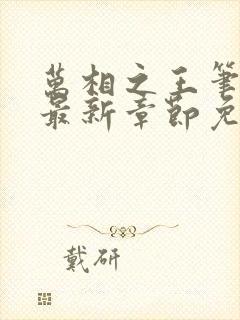 萬相之王筆
最新章節免
戴研